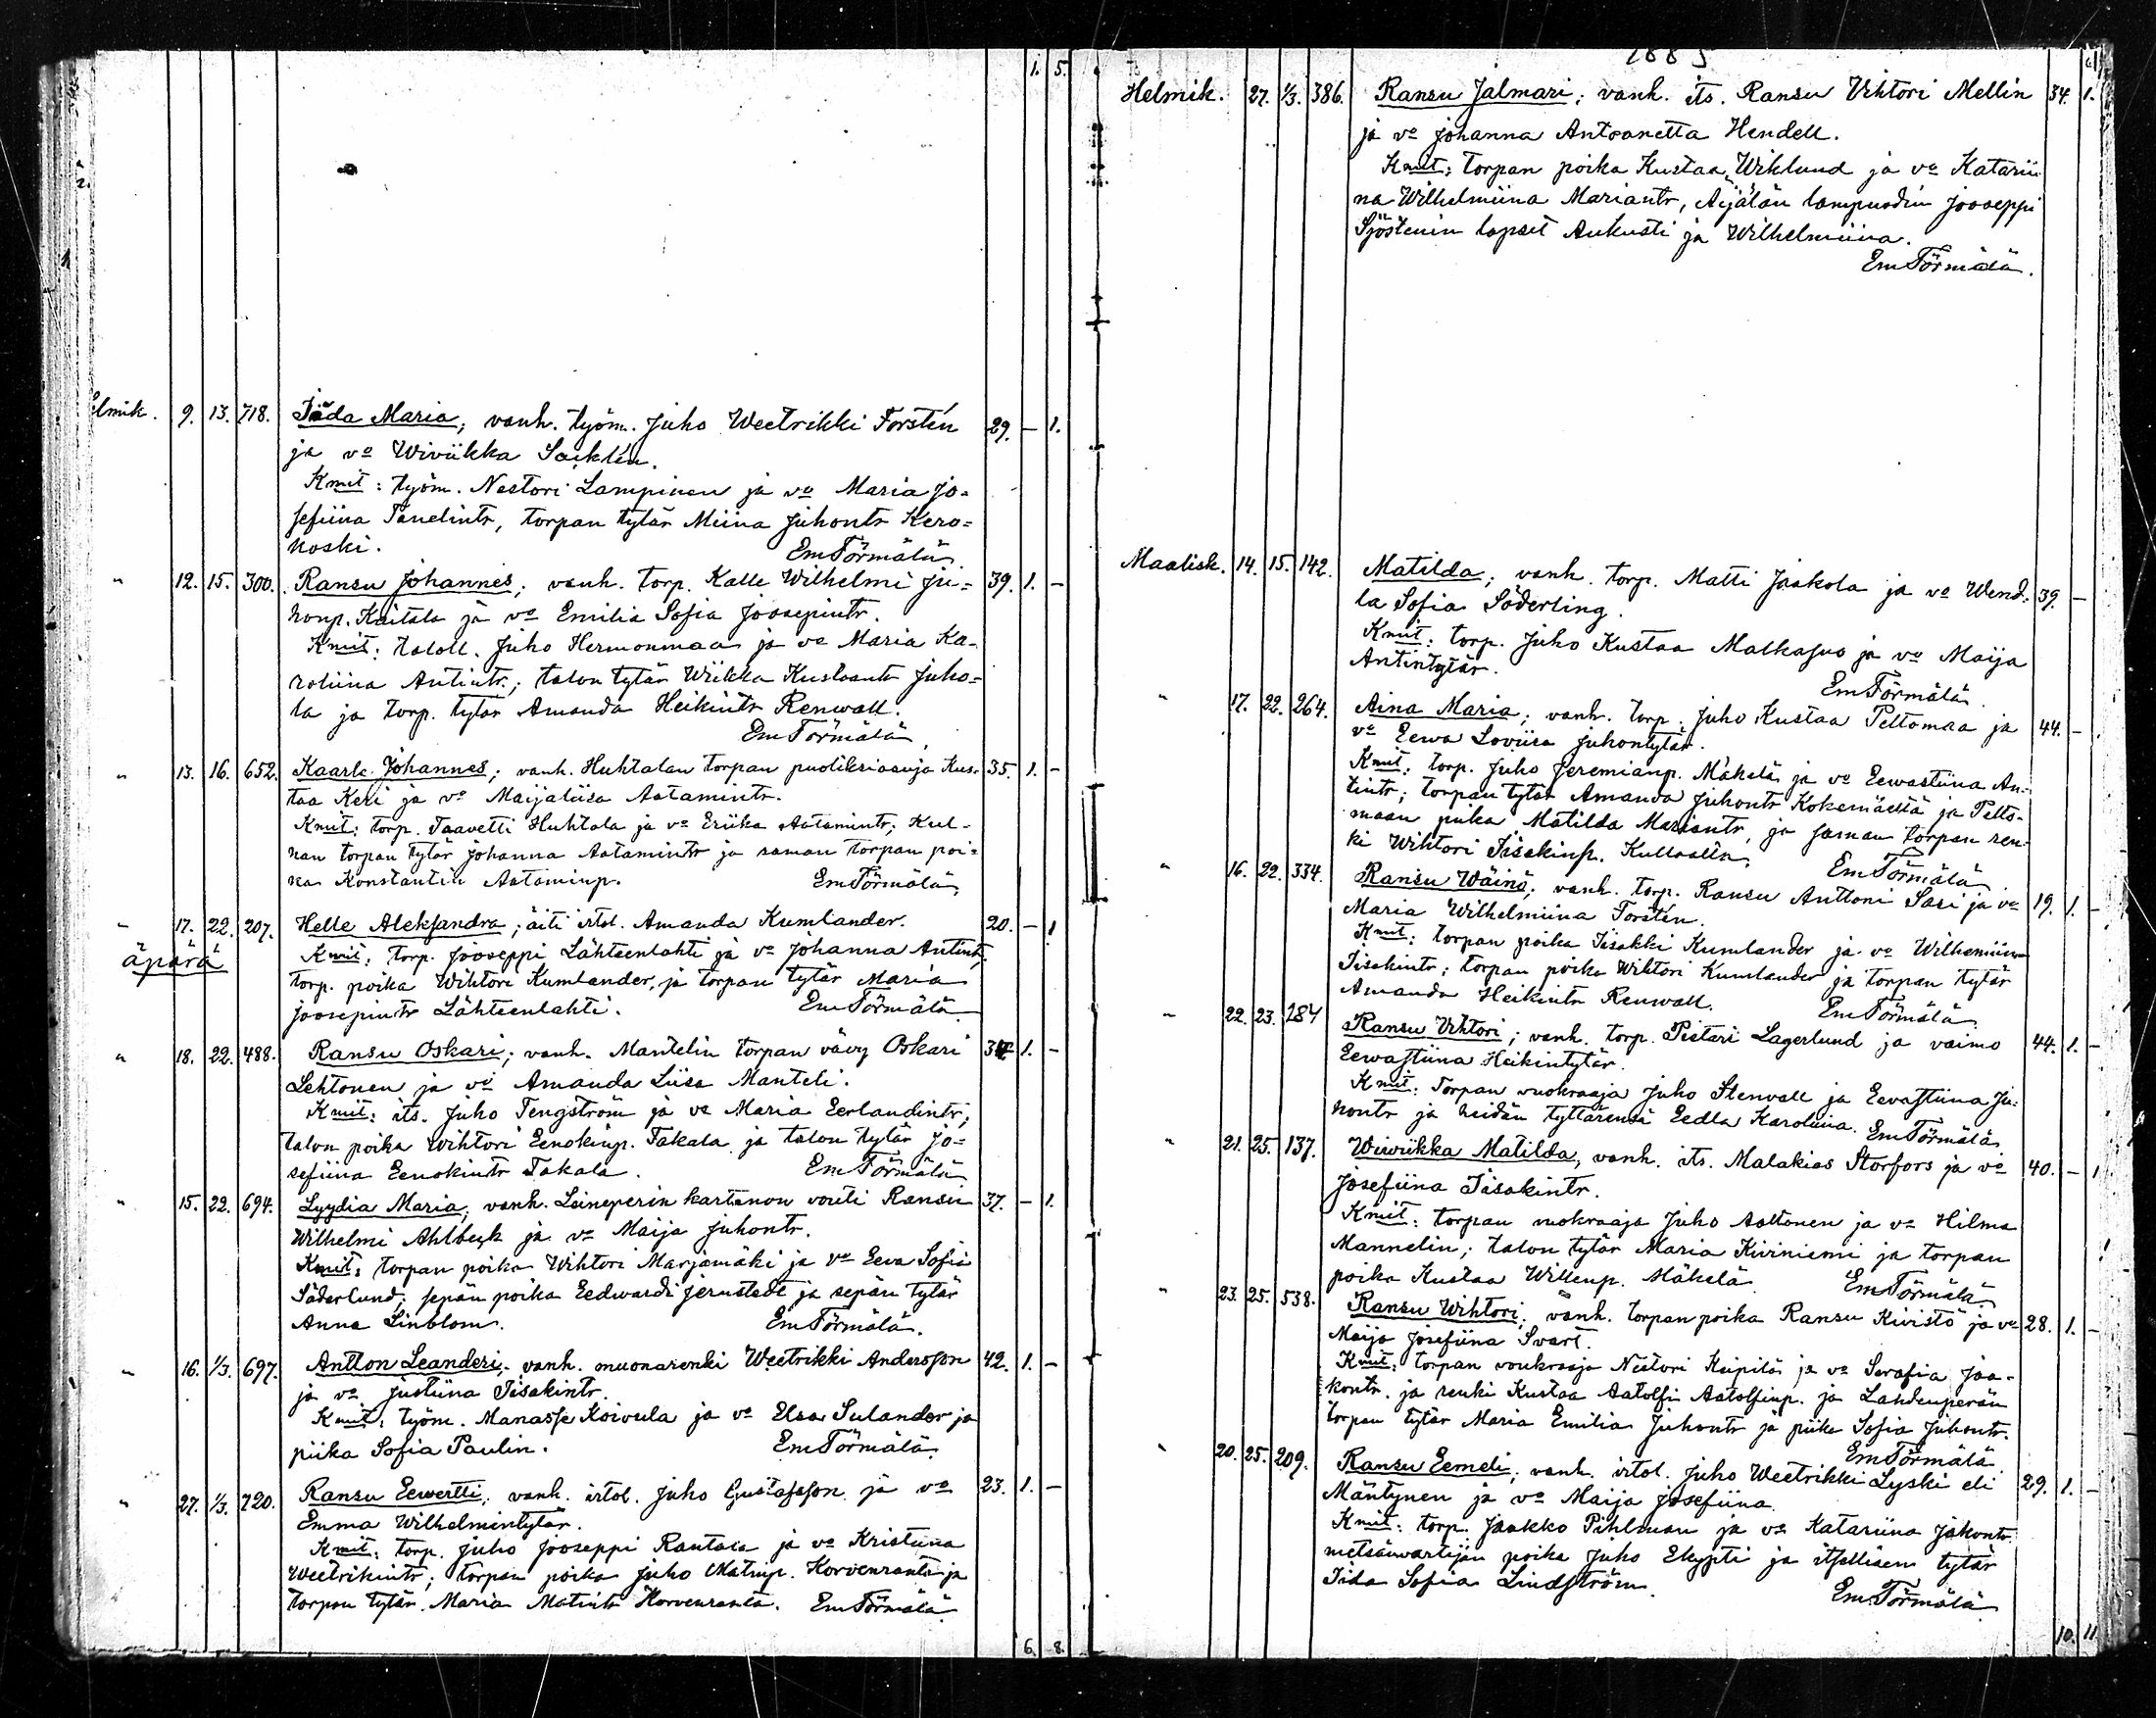 1. 5.
elmik. 9. 13. 718. Iida Maria; vanh. työm. Juho Weetrikki Forstén 29. – 1.
ja vo Wiviikka Saxlén.
Kmit: työm. Nestori Lampinen ja vo Maria Jo=
sefiina Tanelintr, torpan tytär Miina Juhontr Kero=
koski. Em Törmälä
" 12. 15. 300. Ransu Johannes; vanh. torp. Kalle Wilhelmi Ju= 39. 1. –
honp. Kaitala ja vo Emilia Sofia Joosepintr.
Kmit: taloll. Juho Hermonmaa ja vo Maria Ka-
roliina Antintr.; talon tytär Wiikka Kustaantr Juho=
la ja torp. tytär Amanda Heikintr Renwall.
Em Törmälä
" 13. 16. 652. Kaarle Johannes; vanh. Huhtalan torpan puolikriasuja Kus- 35. 1. –
taa Keri ja vo Maijaliisa Aatamintr.
Kmit: torp. Taavetti Huhtala ja vo Eriika Aatamintr; Kul-
nan torpan tytär Johanna Aatamintr ja saman torpan poi-
ka Konstantin Aataminp. Em Törmälä
" 17. 22. 207. Helle Aleksandra; äiti irtol. Amanda Kumlander. 20. – 1
äpärä Kmit: torp. Jooseppi Lähteenlahti ja vo Johanna Antintr,
torp. poika Wihtori Kumlander, ja torpan tytär Maria
Joosepintr Lähteenlahti. Em Törmälä
" 18. 22. 488. Ransu Oskari; vanh. Mantelin torpan vävy Oskari 1. –
Lehtonen ja vo Amanda Liisa Manteli.
Kmit: its. Juho Tengström ja vo Maria Eerlandintr;
talon poika Wihtori Eenokinp. Takala ja talon tytär Jo=
sefiina Eenokintr Takala. Em Törmälä
" 15. 22. 694. Lyydia Maria; vanh. Leineperin kartanon vouti Ransu 37. – 1.
Wilhelmi Ahlbeck ja vo Maija Juhontr.
Kmit: torpan poika Wihtori Marjamäki ja vo Eeva Sofia
Söderlund; sepän poika Eedwardi Jernstedt ja sepän tytär
Anna Linblom. Em Törmälä.
" 16. 1/3. 697. Antton Leanderi; vanh. muonarenki Weetrikki Andersson 42. 1. –
ja vo Justiina Iisakintr.
Kmit: työm. Manasse Koivula ja vo Elsa Sulander ja
piika Sofia Paulin. Em Törmälä
" 27. 1/3. 720. Ransu Eewertti; vanh. irtol. Juho Gustafsson ja vo 23. 1. –
Emma Wilhelmintytär.
Kmit: torp. Juho Jooseppi Rantala ja vo Kristiina
Weetrikintr; torpan poika Juho Matinp. Korvenranta ja
torpan tytär Maria Matintr Korvenranta. Em Törmälä
6. 8.
1885
Helmik. 27. 1/3. 386. Ransu Jalmari; vanh. its. Ransu Vihtori Mellin 34. 1.
ja vo Johanna Antoanetta Hendell.
Kmit: torpan poika Kustaa Wiklund ja vo Katarii-
na Wilhelmiina Mariantr, Äijälän lampuodin Jooseppi
Sjöstenin lapset Aukusti ja Wilhelmiina.
Em Törmälä.
Maalisk. 14. 15. 142. Matilda; vanh. torp. Matti Jaakola ja vo Wend- 39. –
la Sofia Söderling.
Kmit: torp. Juho Kustaa Malkasuo ja vo Maija
Antintytär. Em Törmälä
" 17. 22. 264. Aina Maria; vanh. torp. Juho Kustaa Peltomaa ja 44. –
vo Eewa Loviisa Juhontytär.
Kmit: torp. Juho Jeremianp. Mäkelä ja vo Eewastiina An-
tintr; torpan tytär Amanda Juhontr Kokemäeltä ja Pelto-
maan piika Matilda Mariantr, ja saman torpan ren-
ki Wihtori Iisakinp. Kullaalta. Em Törmälä
" 16. 22. 334. Ransu Wäinö; vanh. torp. Ransu Anttoni Sasi ja vo 19. 1. –
Maria Wilhelmiina Forstén.
Kmit: torpan poika Iisakki Kumlander ja vo Wilhemiina
Iisakintr; torpan poika Wihtori Kumlander ja torpan tytär
Amanda Heikintr Renwall. Em Törmälä
" 22. 23. 184 Ransu Vihtori; vanh. torp. Pietari Lagerlund ja vaimo 44. 1. –
Eewastiina Heikintytär.
Kmit: Torpan vuokraaja Juho Stenvall ja Eevastiina Ju-
hontr ja heidän tyttärensä Eedla Karoliina. Em Törmälä
" 21. 25. 137. Wiwiikka Matilda; vanh. its. Malakias Storfors ja vo 40. – 1
Josefiina Iisakintr.
Kmit: torpan vuokraaja Juho Aaltonen ja vo Hilma
Mannelin; talon tytär Maria Kiviniemi ja torpan
poika Kustaa Willenp. Mäkelä Em Törmälä
" 23. 25. 538. Ransu Wihtori; vanh. torpan poika Ransu Kivistö ja vo 28. 1. –
Maija Josefiina Svart.
Kmit: torpan voukraaja Nestori Keipilä ja vo Serafia Jaa-
kontr. ja renki Kustaa Aatolfi Aatolfinp. ja Lahdenperän
torpan tytär Maria Emilia Juhontr ja piika Sofia Juhontr.
Em Törmälä
" 20. 25. 209. Ransu Eemeli; vanh. irtol. Juho Weetrikki Lyski eli 29. 1. –
Mäntynen ja vo Maija Josefiina.
Kmit: torp. Jaakko Pihlman ja vo Katariina Jakontr
metsänvartijan poika Juho Ekypti ja itsellisen tytär
Iida Sofia Lindström. Em Törmälä
10. 11